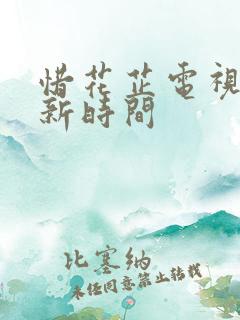 惜花芷電視
新時間
比塞納
未经同意禁止转载